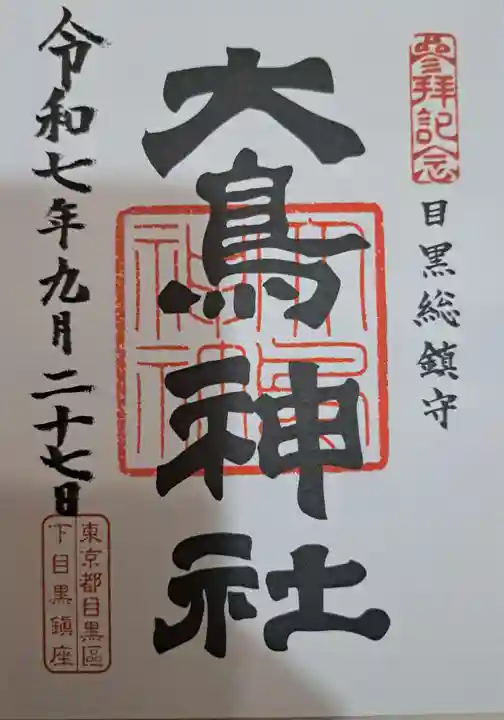 參拝記念
目黒総鎮守
大鳥神社
令和七年九月二十七日
東京都目黒區
下目黒鎮座